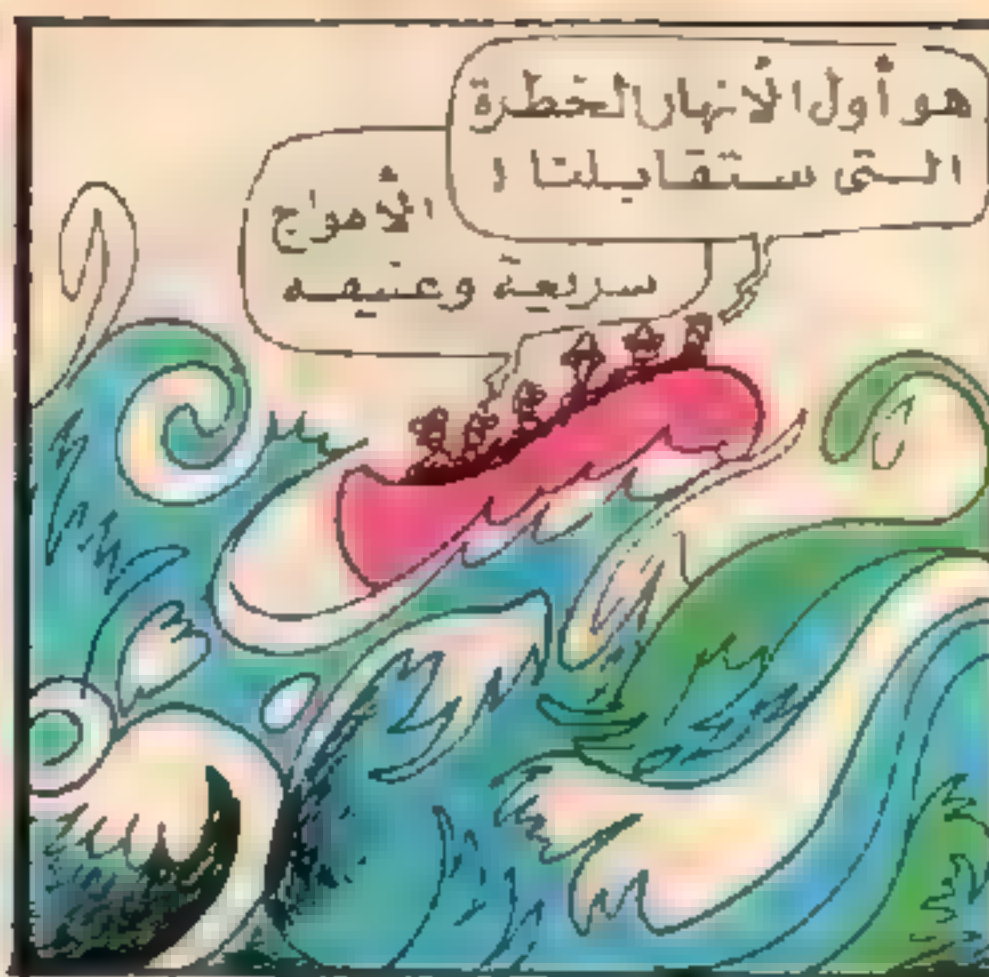 هو أول الأنهار الخطرة
التى ستقابلنا !
الأمواج
سريعة وعنيفه